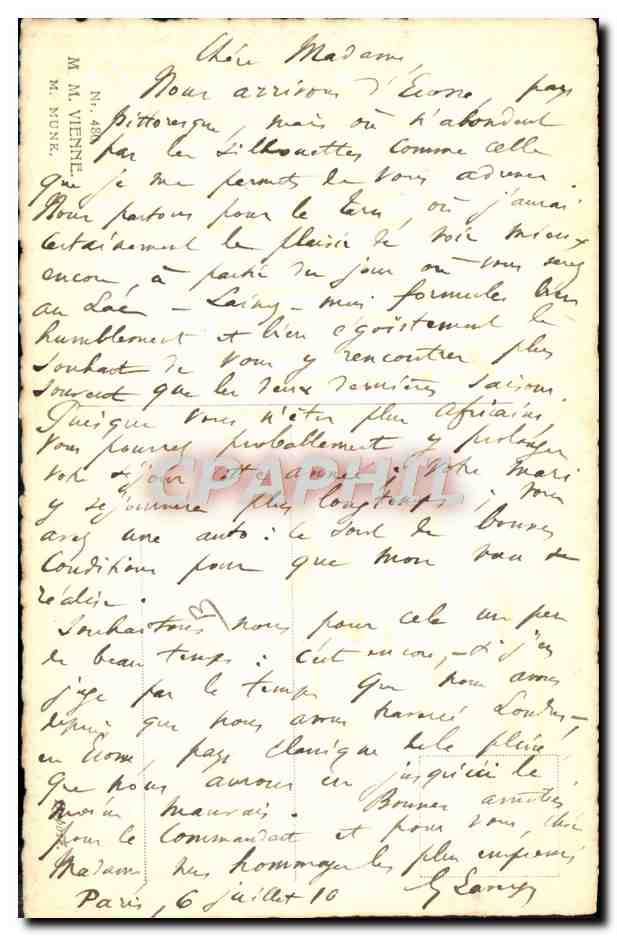 Nr. 486
M M. VIENNE.
M. MUNK.
Chère Madame,
Nous arrivons d'Ecosse, pays
pittoresque, mais où n'abondent
pas les silhouettes comme celle
que je me permets de vous adresser.
Nous partons pour le , où j'aurai
certainement le plaisir de voir mieux
encore, à partir du jour où vous serez
au Lac - - mais formules bien
humblement et bien égoïstement le
souhait de vous y rencontrer plus
souvent que les deux dernières saisons.
Puisque vous n'êtes plus Africains,
vous pourrez probablement y prolonger
votre séjour cette année ; votre mari
y séjournera plus longtemps ; vous
avez une auto : ce sont de bonnes
conditions pour que mon vœu se
réalise.
Souhaitons nous pour cela un peu
de beau temps : c'est encore, - si j'en
juge par le temps que nous avons
depuis que nous avons traversé Londres -,
en Ecosse, pays classique de la pluie,
que nous aurons eu jusqu'ici le
moins mauvais. Bonnes amitiés
pour le Commandant et pour vous, chère
Madame, mes hommages les plus empressés
Paris, 6 juillet 10
CPAPHIL